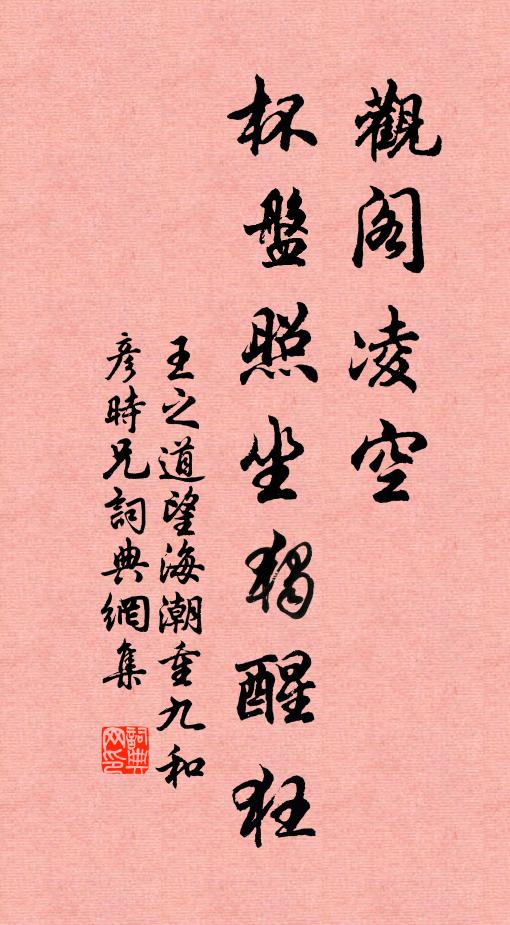 觀阁凌空
杯盤照坐獨醒狂
王之道望海潮重九和
彥時兄詞典網集
詞典网印